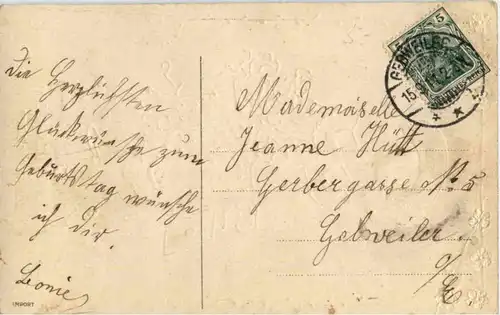 die Herzlichsten
Glückwünsche zum
Geburtstag wünsche
ich dir.
Leonie
IMPORT
5
GEBWEILER
15
Mademoiselle
Jeanne Hütt
Gerbergasse No 5
Gebweiler.
o/
E.